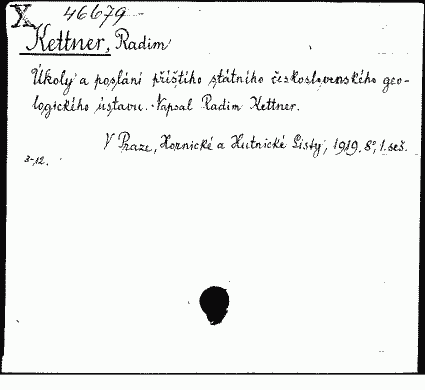 X 46679
Kettner, Radim
Úkoly a poslání příštího státního československého geo-
logického ústavu. Napsal Radim Kettner.
V Praze, Hornické a Hutnické Listy, 1919. 8°, 1. seš.
3-12.